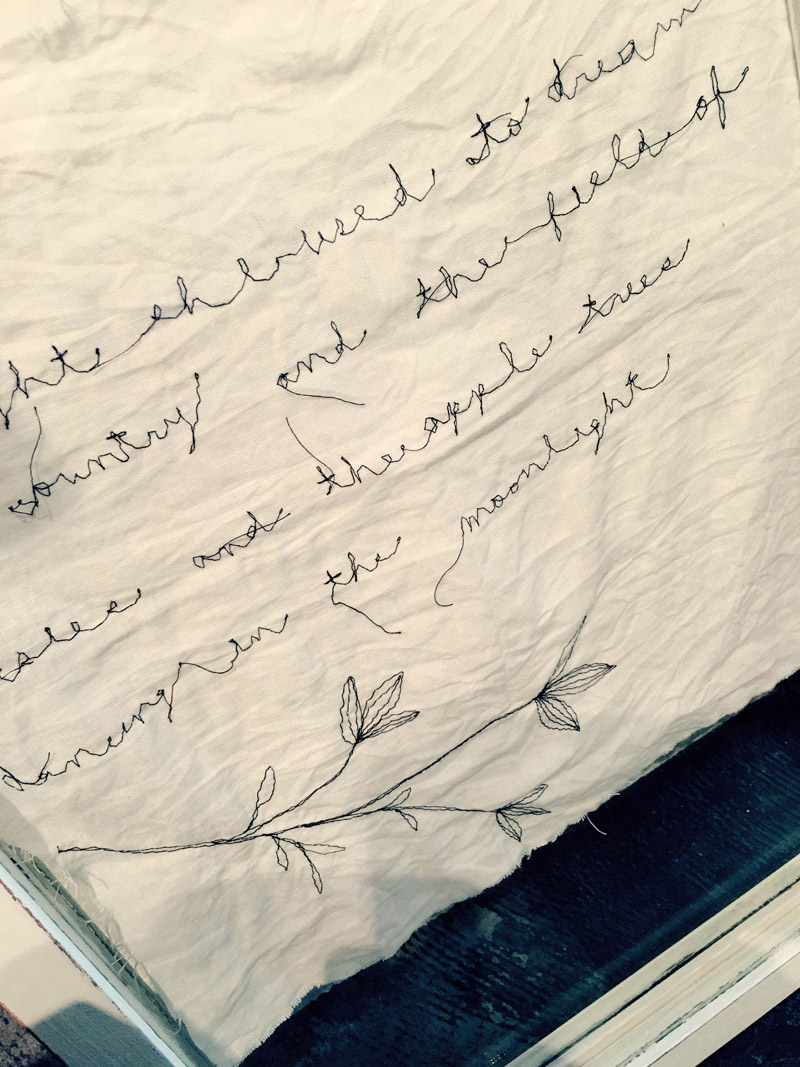 ght she used to dream
country and the fields of
and the apple trees
dancing in the moonlight